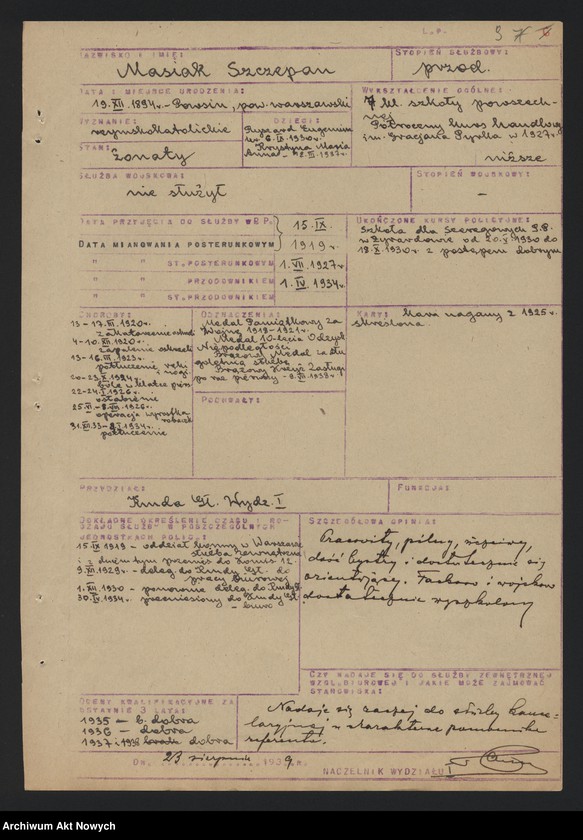 L.P.
NAZWISKO I IMIĘ:
Masiak Szczepan
STOPIEŃ SŁUŻBOWY:
przod.
DATA I MIEJSCE URODZENIA:
19.XII.1894r. – Powsin, pow. warszawski
WYKSZTAŁCENIE OGÓLNE:
7 kl. szkoły powszech-
nej
Półroczny kurs handlowy
im. Gracjana Pyrka w 1927r.
niższe
WYZNANIE:
rzymskokatolickie
STAN:
żonaty
DZIECI:
Ryszard Eugeniusz
Krystyna Maria
Anna
SŁUŻBA WOJSKOWA:
nie służył
STOPIEŃ WOJSKOWY:
–
DATA PRZYJĘCIA DO SŁUŻBY W P.P.
15.IX.
DATA MIANOWANIA POSTERUNKOWYM
1919r.
" " ST.POSTERUNKOWYM
1.VII.1927r.
" " PRZODOWNIKIEM
1.IV.1934r.
" " ST.PRZODOWNIKIEM
UKOŃCZONE KURSY POLICYJNE:
Szkoła dla Szeregowych P.P.
w Żyrardowie od 20.X.1930 do
18.X.1930r. z postępem dobrym
CHOROBY:
13–17.III.1920r.
4–10.XII.1920r.
zapalenie oskrzeli
13–16.III.1923r.
potłuczenie ręki
i nogi
bóle w klatce piers.
22–24.I.1926r.
osłabienie
25.VI.–8.VII.1926r.
operacja wyrostka
robaczk.
31.XII.33–8.I.1934r.
potłuczenie
ODZNACZENIA:
Medal Pamiątkowy za
Wojnę 1918–1921r.
Medal 10-lecia Odzysk.
Niepodległości
Brązowy Medal za dłu-
goletnią służbę
Brązowy Krzyż Zasługi
po raz pierwszy
POCHWAŁY:
KARY:
kara nagany z 1925r.
skreślona.
PRZYDZIAŁ:
Kmda Gł. Wydz. I
FUNKCJA:
DOKŁADNE OKREŚLENIE CZASU I RO-
DZAJU SŁUŻBY W POSZCZEGÓLNYCH
JEDNOSTKACH POLICJI:
15.IX.1919 – oddział konny w Warszawie
służba zewnętrzna
i z dniem tym przenies. do Komis. 12.
9.XII.1929r. – deleg. do Kmdy Gł. do
pracy biurowej
1.VII.1930 – ponownie deleg. do Kmdy Gł.
30.IV.1934r. przeniesiony do Kmdy Gł.
– biuro
SZCZEGÓŁOWA OPINIA:
Pracowity, pilny, uczciwy,
dość bystry i dostatecznie się
orientujący. Fachowo i wojskowo
dostatecznie wyszkolony
CZY NADAJE SIĘ DO SŁUŻBY ZEWNĘTRZNEJ
WZGL.BIUROWEJ I JAKIE MOŻE ZAJMOWAĆ
STANOWISKA:
Nadaje się raczej do służby kance-
laryjnej w charakterze pomocnika
referenta.
OCENY KWALIFIKACYJNE ZA
OSTATNIE 3 LATA:
1935 – b. dobra
1936 – dobra
1937 i 1938 dobra
DN. 23 sierpnia 1939r.
NACZELNIK WYDZIAŁU I
Archiwum Akt Nowych